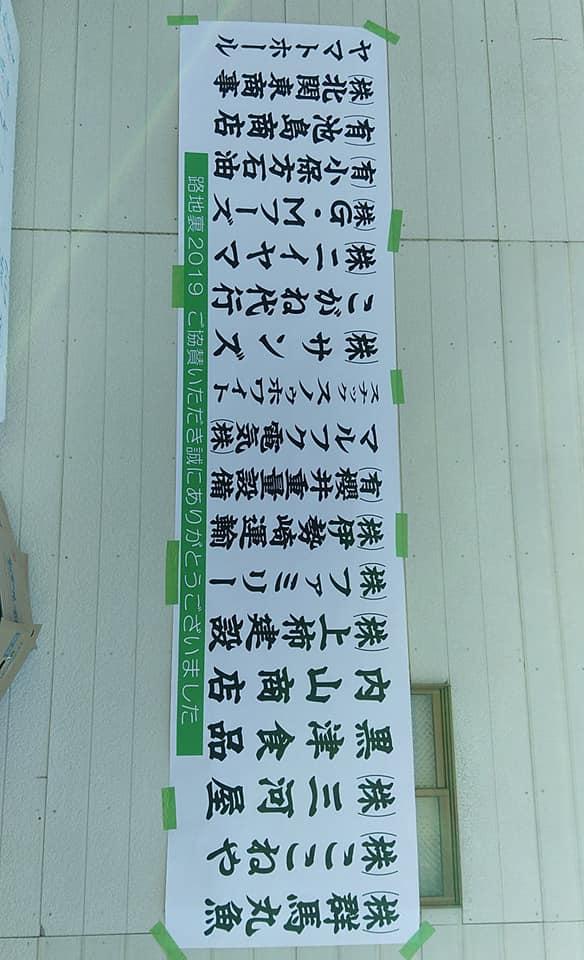 (株)群馬丸魚
(株)こころねや
(株)三河屋
黒津食品
内山商店
(株)上柿建設
(株)ファミリー
(株)伊勢崎運輸
(有)櫻井重量設備
マルフク電気(株)
スナックスノゥホワイト
(株)サンズ
こがね代行
(株)ニイヤマ
(株)G・Mフーズ
(有)小保方石油
(有)池島商店
(株)北関東商事
ヤマトホール
路地裏2019 ご協賛いただき誠にありがとうございました